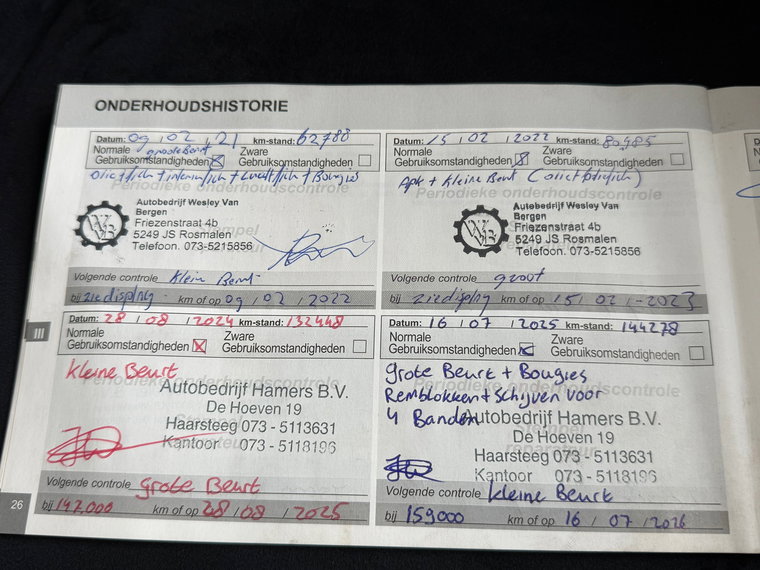 ONDERHOUDSHISTORIE
Datum: 09 / 02 / 21 km-stand: 62788
Normale grooteBeurt Zware
Gebruiksomstandigheden Gebruiksomstandigheden
Oliefilter + interieurfilt + Luchtfilt + Bougies
Periodieke onderhoudscontrole
Autobedrijf Wesley Van
Bergen
Friezenstraat 4b
5249 JS Rosmalen
Telefoon. 073-5215856
WVB
Volgende controle Klein Beurt
bij ziedisplay km of op 09 / 02 / 2022
Datum: 15 / 02 / 2022 km-stand: 80985
Normale Zware
Gebruiksomstandigheden Gebruiksomstandigheden
Apk + Kleine Beurt (
Periodieke onderhoudscontrole
Autobedrijf Wesley Van
Bergen
Friezenstraat 4b
5249 JS Rosmalen
Telefoon. 073-5215856
WVB
Volgende controle groot
bij ziedisplay km of op 15 / 02 / -2023
III
Datum: 28 / 08 / 2024 km-stand: 132448
Normale Zware
Gebruiksomstandigheden Gebruiksomstandigheden
kleine Beurt
Periodieke onderhoudscontrole
Autobedrijf Hamers B.V.
De Hoeven 19
Haarsteeg 073 - 5113631
Kantoor 073 - 5118196
Volgende controle Grote Beurt
bij 147.000 km of op 28 / 08 / 2025
Datum: 16 / 07 / 2025 km-stand: 144278
Normale Zware
Gebruiksomstandigheden Gebruiksomstandigheden
grote Beurt + Bougies
Periodieke onderhoudscontrole
Remblokken + Schijven voor
4 Banden
Autobedrijf Hamers B.V.
De Hoeven 19
Haarsteeg 073 - 5113631
Kantoor 073 - 5118196
Volgende controle kleine Beurt
bij 159000 km of op 16 / 07 / 2026
26